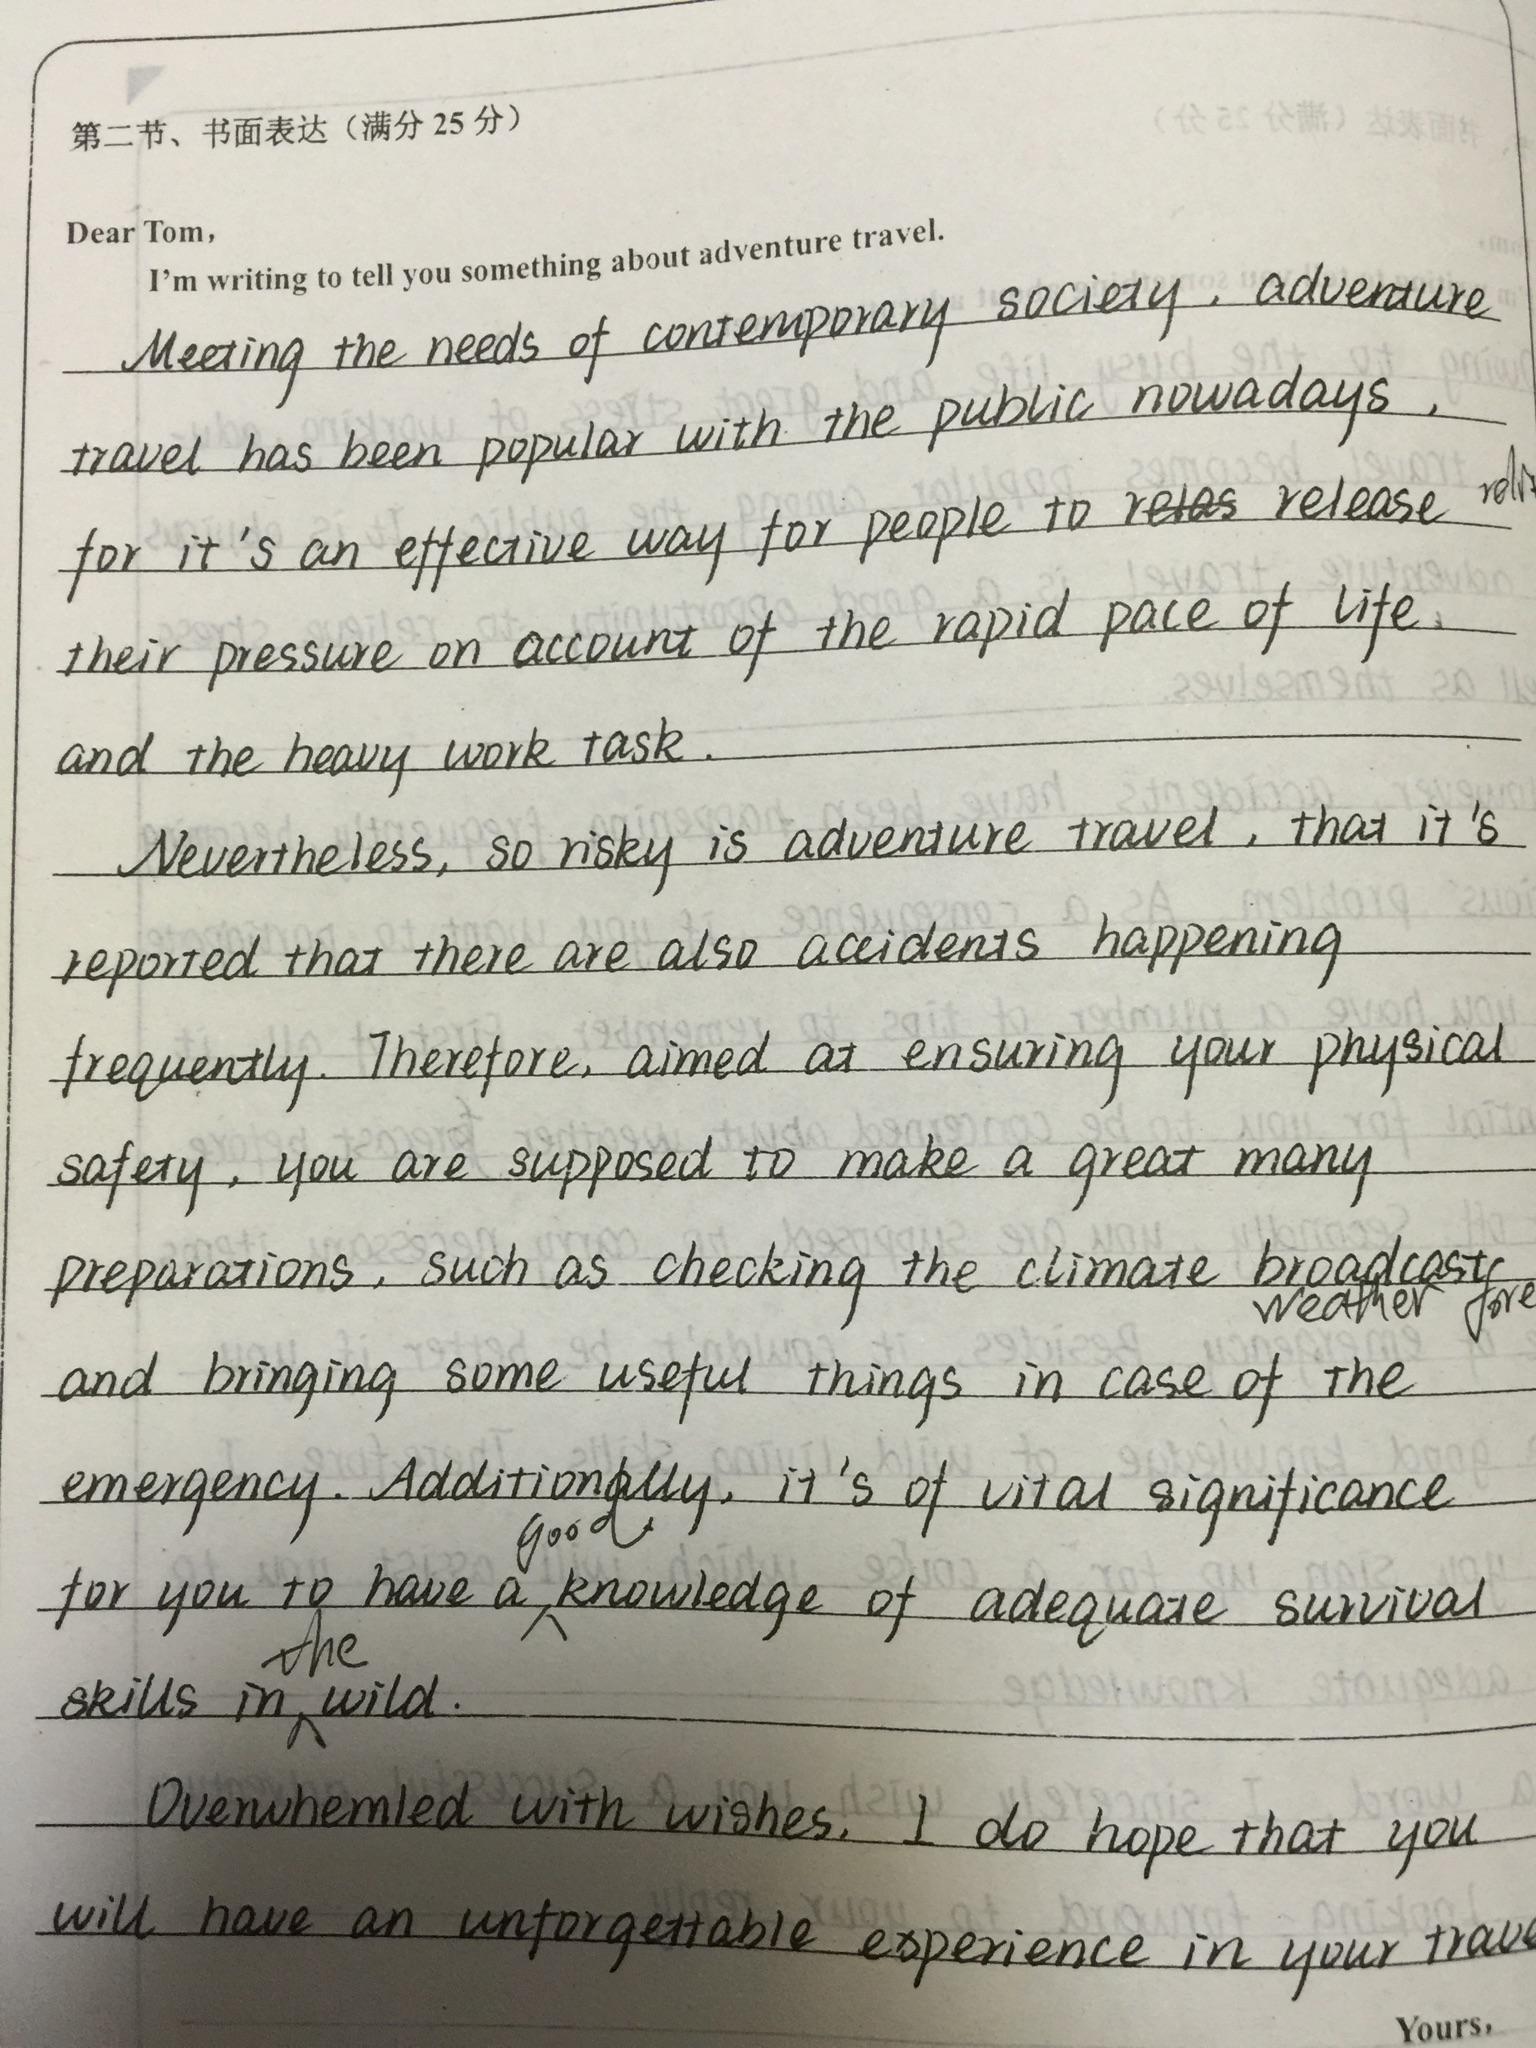 第二节、书面表达（满分 25 分）
Dear Tom,
I'm writing to tell you something about adventure travel.
Meeting the needs of contemporary society, adventure
travel has been popular with the public nowadays,
for it's an effective way for people to relas release
their pressure on account of the rapid pace of life,
and the heavy work task.
Nevertheless, so risky is adventure travel, that it's
reported that there are also accidents happening
frequently. Therefore, aimed at ensuring your physical
safety, you are supposed to make a great many
preparations, such as checking the climate broadcast
weather fore
and bringing some useful things in case of the
emergency. Additionally, it's of vital significance
good
for you to have a knowledge of adequate survival
the
skills in wild.
Overwhemled with wishes, I do hope that you
will have an unforgettable experience in your trave
Yours,